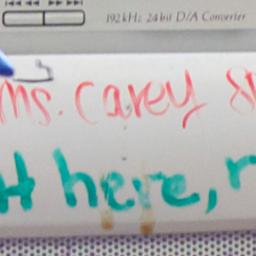 192kHz 24bit D/A Converter
Ms. Carey
here,